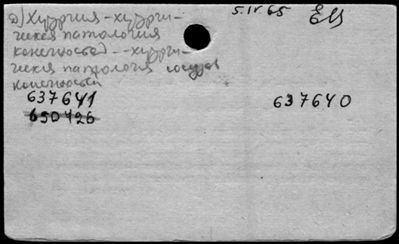 д) Хирургия - хирурги-
ческая патология
конечностей. - хирурги-
ческая патология сосудов
конечностей
5.IV.65
637641
637640
650426